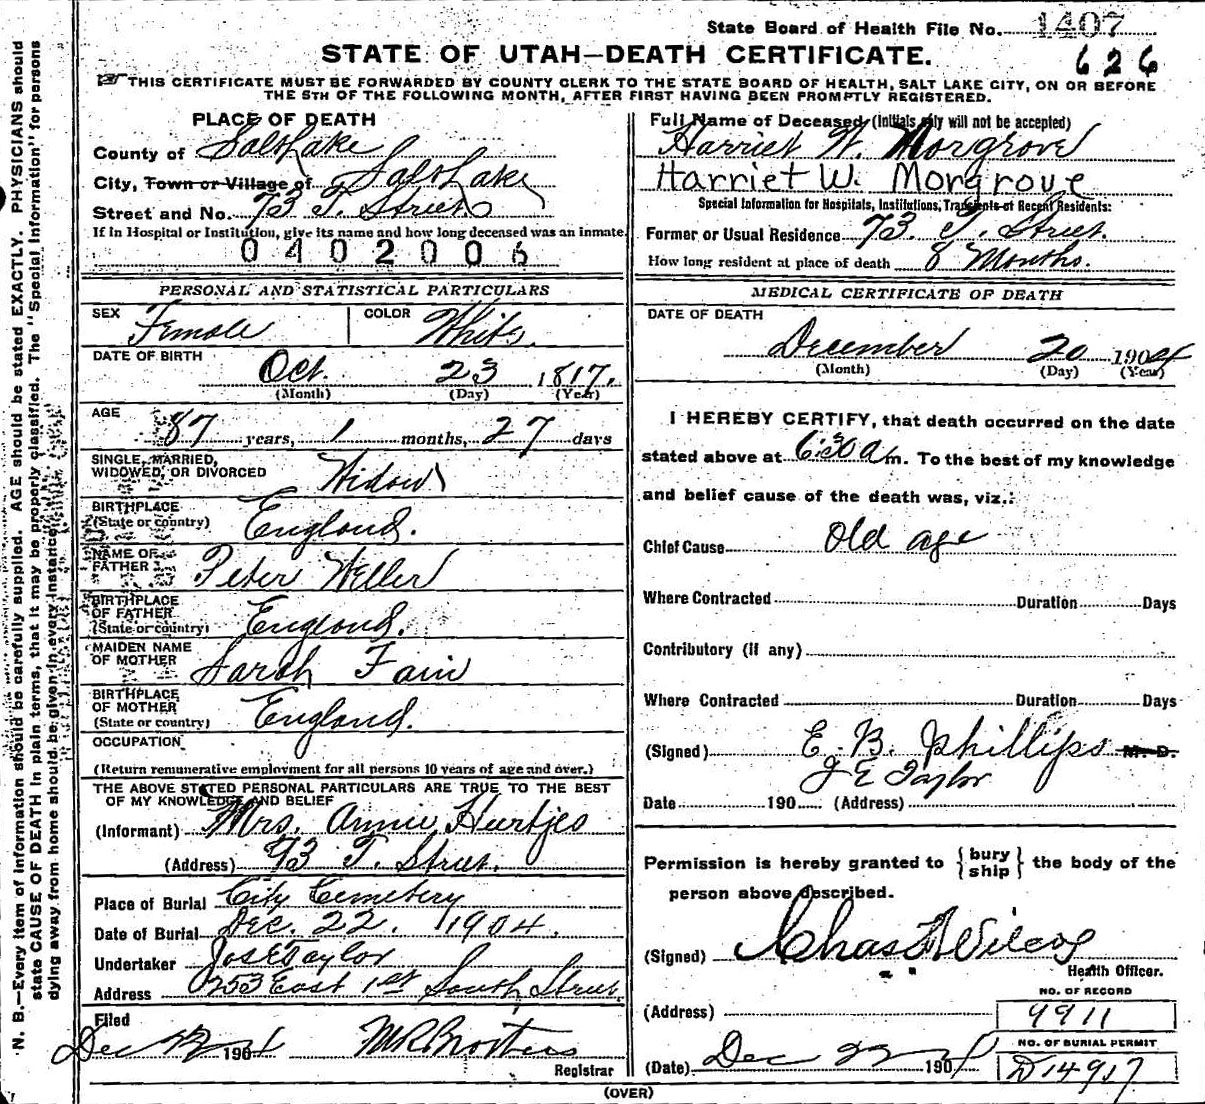 State Board of Health File No. 1407
STATE OF UTAH—DEATH CERTIFICATE.
626
THIS CERTIFICATE MUST BE FORWARDED BY COUNTY CLERK TO THE STATE BOARD OF HEALTH, SALT LAKE CITY, ON OR BEFORE
THE 5TH OF THE FOLLOWING MONTH, AFTER FIRST HAVING BEEN PROMPTLY REGISTERED.
PLACE OF DEATH
County of Salt Lake
City, Town or Village of Salt Lake
Street and No. 73 T. Street
If in Hospital or Institution, give its name and how long deceased was an inmate.
0402006
PERSONAL AND STATISTICAL PARTICULARS
SEX Female COLOR White
DATE OF BIRTH
Oct. 23 1817.
(Month) (Day) (Year)
AGE
87 years, 1 months, 27 days
SINGLE, MARRIED,
WIDOWED, OR DIVORCED Widow
BIRTHPLACE
(State or country) England.
NAME OF
FATHER Peter Weller
BIRTHPLACE
OF FATHER
(State or country) England.
MAIDEN NAME
OF MOTHER Sarah Fain
BIRTHPLACE
OF MOTHER
(State or country) England.
OCCUPATION
(Return remunerative employment for all persons 10 years of age and over.)
THE ABOVE STATED PERSONAL PARTICULARS ARE TRUE TO THE BEST
OF MY KNOWLEDGE AND BELIEF
(Informant) Mrs. Annie Hurtjes
(Address) 73 T. Street.
Place of Burial City Cemetery
Date of Burial Dec. 22. 1904.
Undertaker Jos E Taylor
Address 253 East 1st South Street.
Filed
Dec 22 1904
Registrar
Full Name of Deceased (Initials only will not be accepted)
Harriet W. Morgrove
Harriet W. Morgrove
Special Information for Hospitals, Institutions, Transients or Recent Residents:
Former or Usual Residence 73. T. Street.
How long resident at place of death 8 Months.
MEDICAL CERTIFICATE OF DEATH
DATE OF DEATH
December 20 1904
(Month) (Day) (Year)
I HEREBY CERTIFY, that death occurred on the date
stated above at 6:30 a m. To the best of my knowledge
and belief cause of the death was, viz.:
Chief Cause Old age
Where Contracted Duration Days
Contributory (if any)
Where Contracted Duration Days
(Signed) E. B. Phillips M. D.
J E Taylor
Date 190 (Address)
Permission is hereby granted to { bury ship } the body of the
person above described.
(Signed) Chas F Wilcox
Health Officer.
NO. OF RECORD
(Address) 9911
NO. OF BURIAL PERMIT
(Date) Dec 22 1904 D14917
(OVER)
N. B.—Every item of information should be carefully supplied. AGE should be stated EXACTLY. PHYSICIANS should
state CAUSE OF DEATH in plain terms, that it may be properly classified. The "Special Information" for persons
dying away from home should be given in every instance.